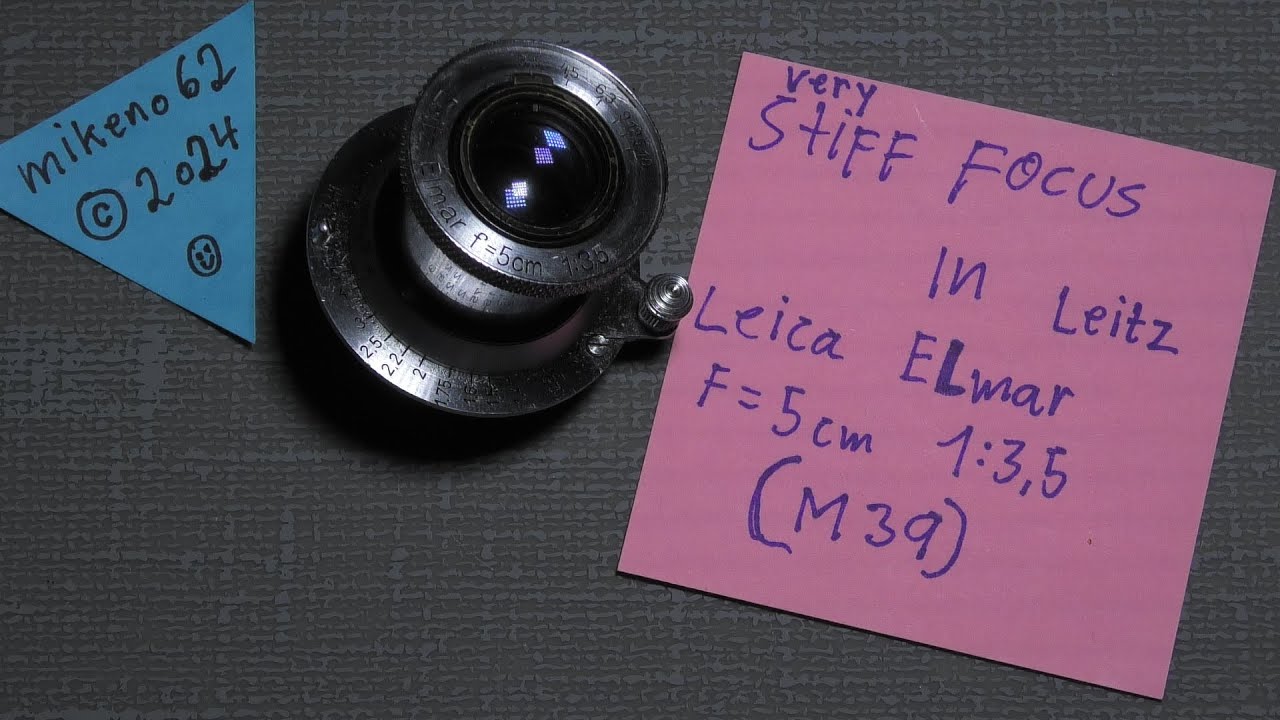 mikeno62
© 2024
Elmar f=5cm 1:3,5
4,5 6,3
3
2.5
2.2
2
1.75
very
STIFF FOCUS
IN Leitz
Leica ELmar
F=5cm 1:3,5
(M39)